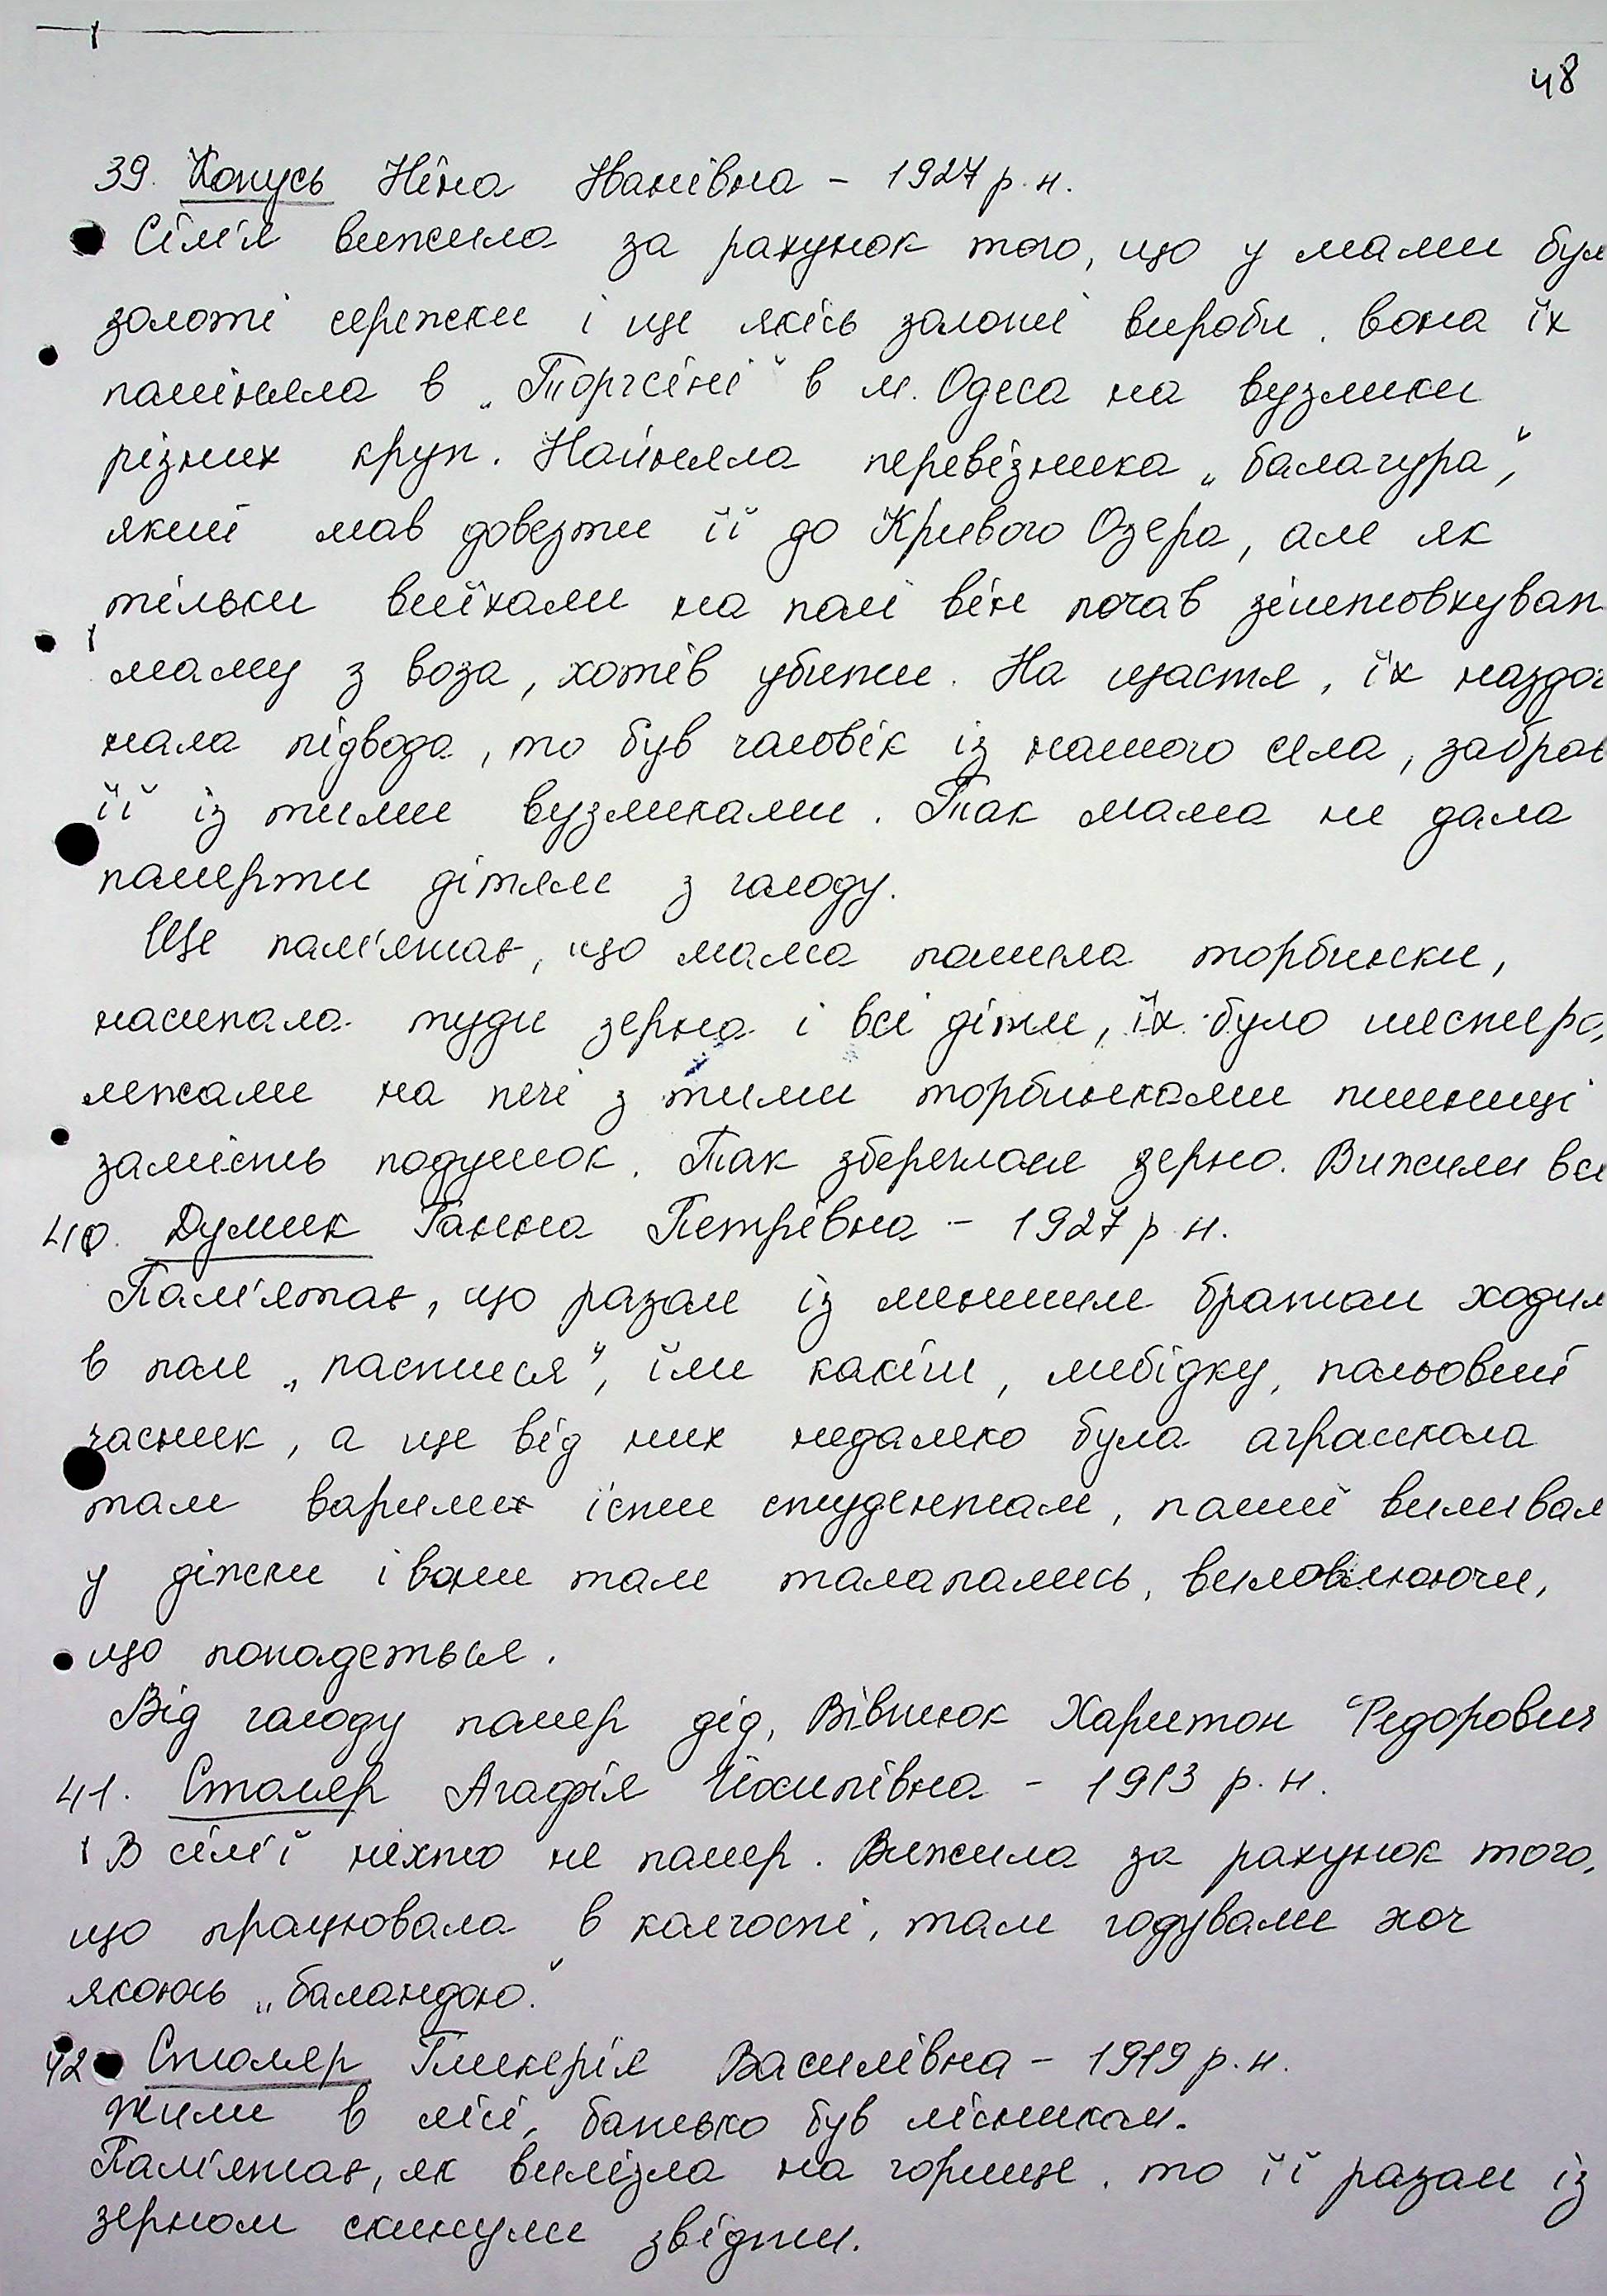 48
39. Конусь Ніна Іванівна – 1927 р.н.
Сім'я вижила за рахунок того, що у мами бул
золоті сережки і ще якісь золоті вироби. вона їх
поміняла в „Торгсіні" в м. Одеса на вузлики
різних круп. Найняла перевізника „балагура",
який мав довезти її до Кривого Озера, але як
тільки виїхали на поле він почав зіштовхуват
маму з воза, хотів убити. На щастя, їх наздог
нала підвода, то був чоловік із нашого села, забрав
її із тими вузликами. Так мама не дала
померти дітям з голоду.
Ще пам'ятає, що мама пошила торбинки,
насипала туди зерна і всі діти, їх було шестеро,
лежали на печі з тими торбинками пшениці
замість подушок. Так збереглося зерно. Вижили всі
40. Думик Ганна Петрівна – 1927 р.н.
Пам'ятає, що разом із меншим братом ходил
в поле „пастися", їли какіш, либідку, польовий
часник, а ще від них недалеко була аграшкола
там варили їсти студентам, помиї виливал
у діжки і вони там талапались, виловлюючи,
що попадеться.
Від голоду помер дід, Вівнюк Харитон Федорович
41. Столяр Агафія Йосипівна – 1913 р.н.
В сім'ї ніхто не помер. Вижила за рахунок того,
що працювала в колгоспі, там годували хоч
якоюсь „баландою."
42 Столяр Гликерія Василівна – 1919 р.н.
Жили в лісі, батько був лісником.
Пам'ятає, як вилізла на горище, то її разом із
зерном скинули звідти.